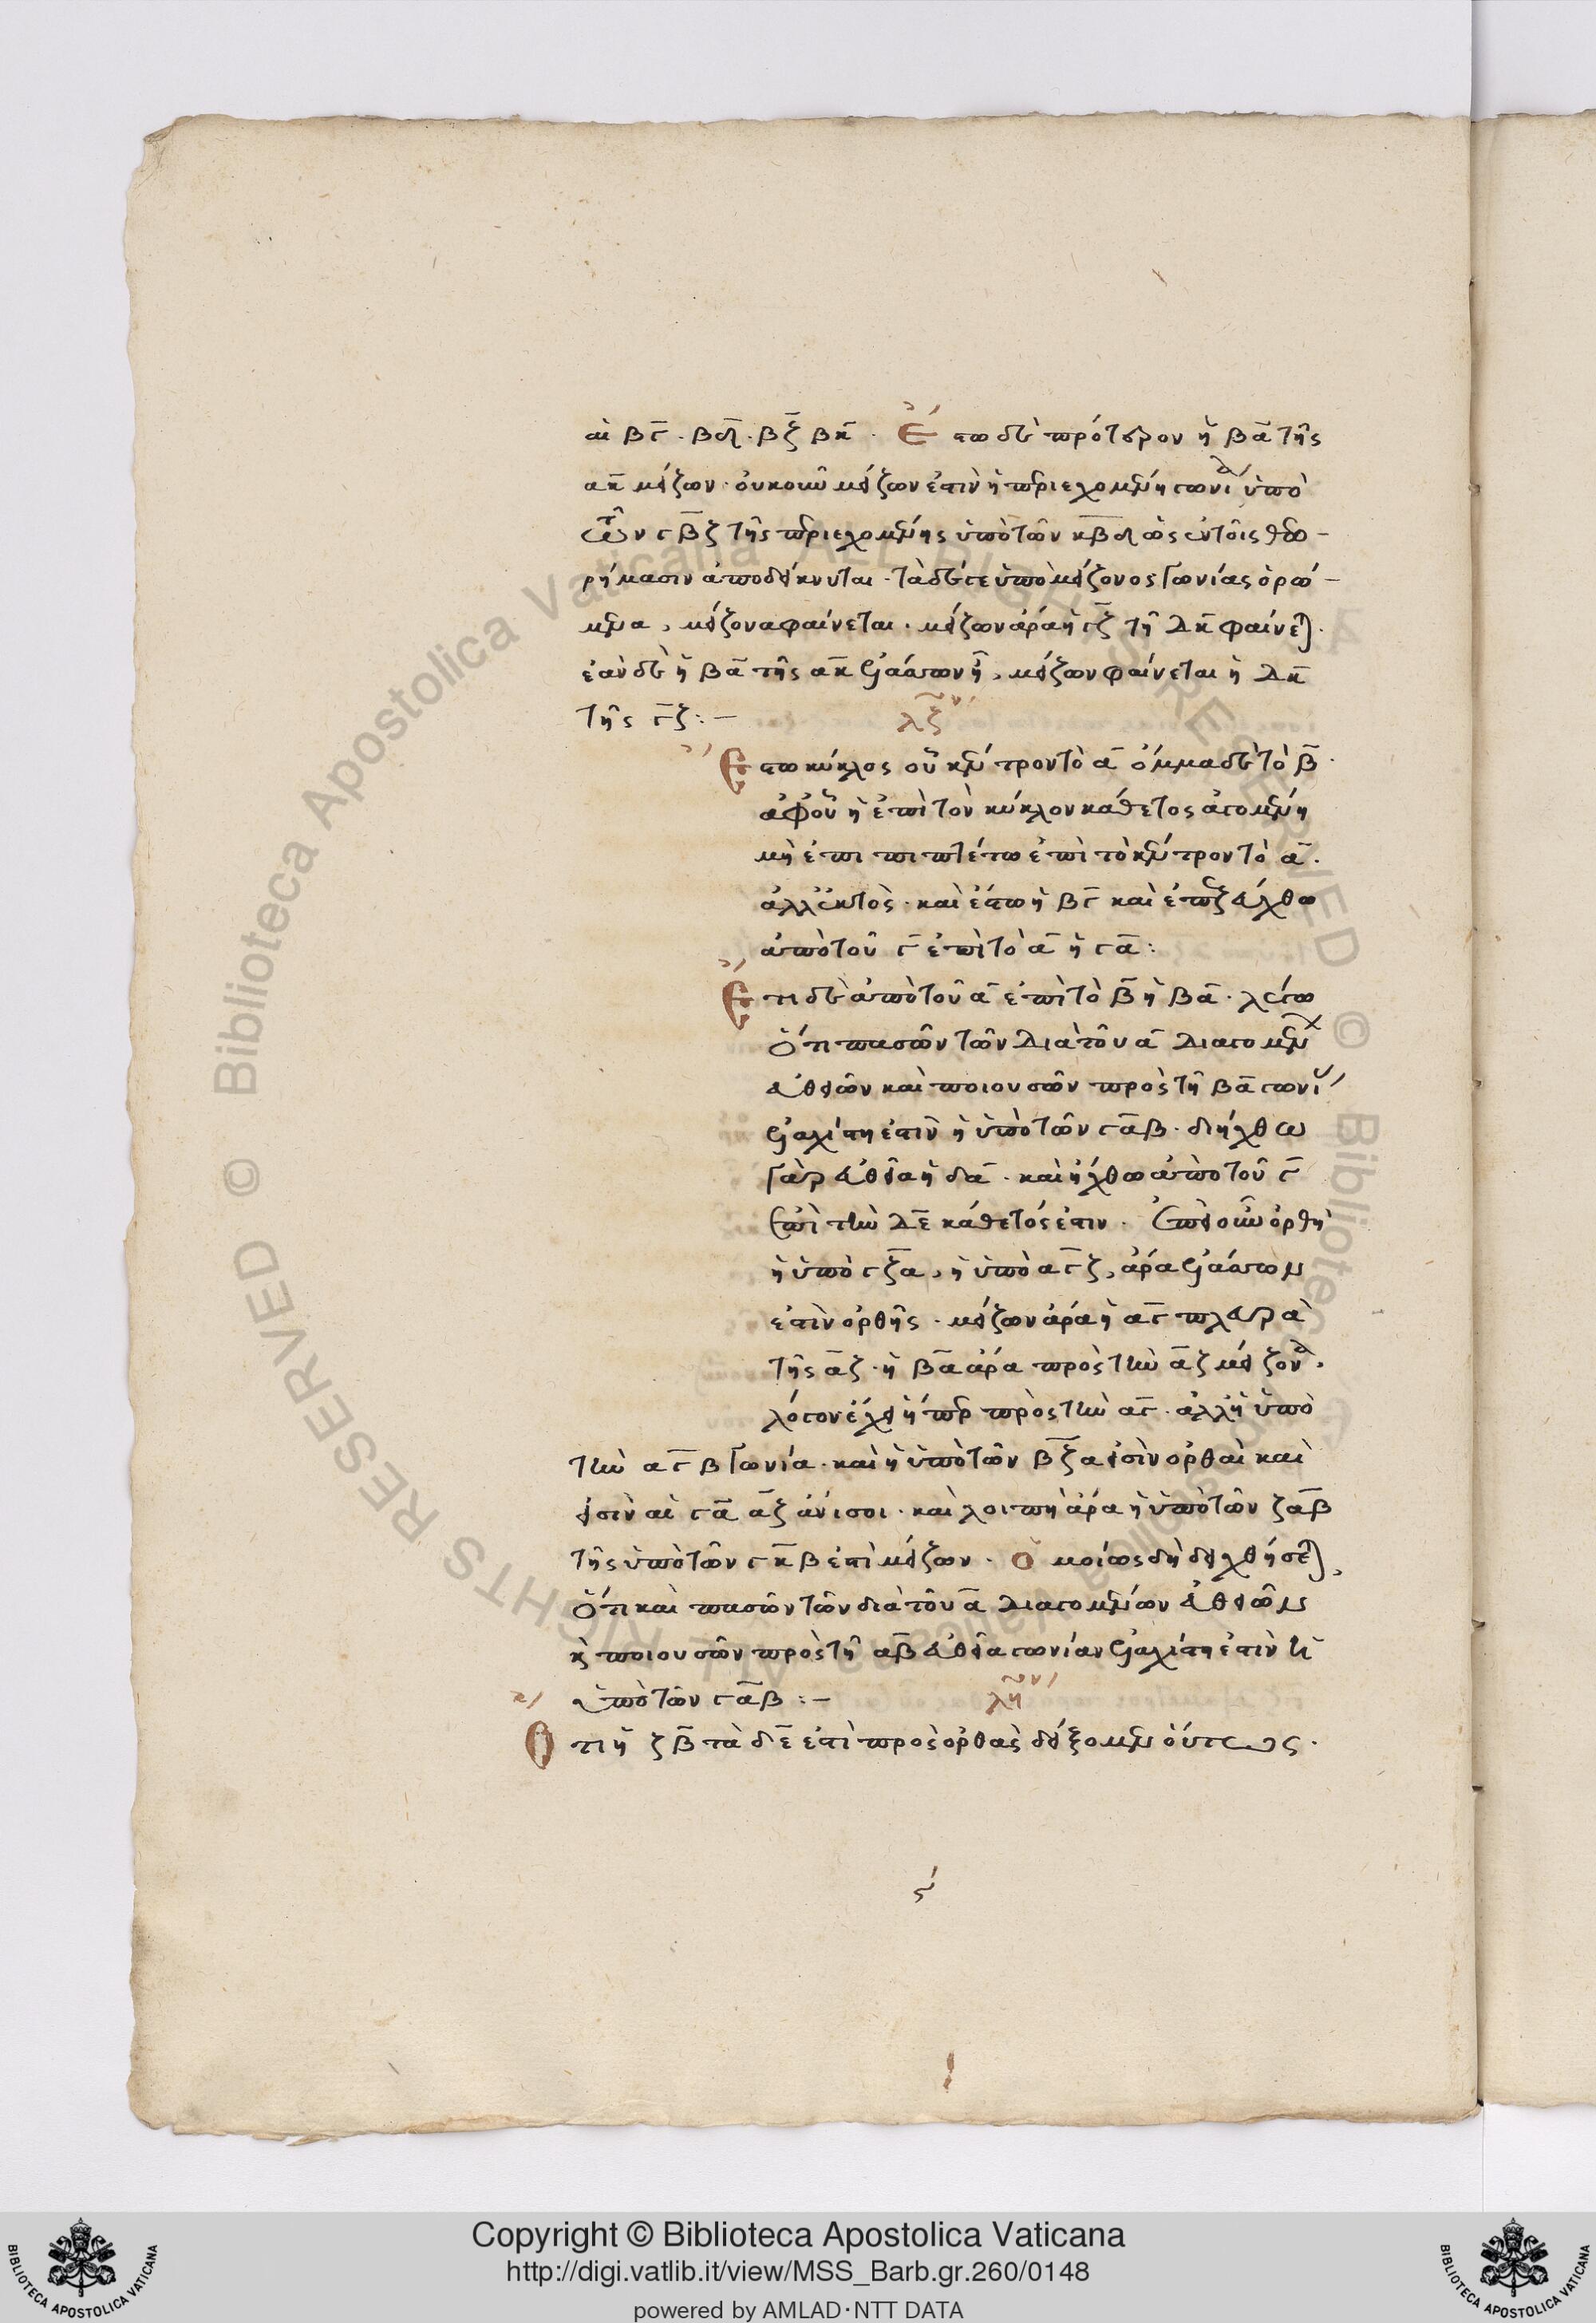 αἱ βγ. βδ. βζ βκ. Ἔστω δὲ πρότερον ἡ βα τῆς
ακ μείζων. οὐκοῦν μείζων ἐστὶν ἡ περιεχομένη γωνία ὑπὸ
τῶν γβζ τῆς περιεχομένης ὑπὸ τῶν κβδ ὡς ἐν τοῖς θεω-
ρήμασιν ἀποδείκνυται. τὰ δέ γε ὑπὸ μείζονος γωνίας ὁρώ-
μενα, μείζονα φαίνεται. μείζων ἄρα ἡ γζ τῇ δκ φαίνεται.
ἐὰν δὲ ἡ βα τῆς ακ ἐλάσσων ᾖ, μείζων φαίνεται ἡ δκ
τῆς γζ:—
λζον
Ἔστω κύκλος οὗ κέντρον τὸ α ὄμμα δὲ τὸ β.
ἀφ' οὗ ἡ ἐπὶ τὸν κύκλον κάθετος ἀγομένη
μὴ ἐπιπιπτέτω ἐπὶ τὸ κέντρον τὸ α.
ἀλλ' ἐκτὸς. καὶ ἔστω ἡ βγ καὶ ἐπεζεύχθω
ἀπὸ τοῦ γ ἐπὶ τὸ α ἡ γα:
Ἔτι δὲ ἀπὸ τοῦ α ἐπὶ τὸ β ἡ βα. λέγω
ὅτι πασῶν τῶν διὰ τοῦ α διαγομένων
εὐθειῶν καὶ ποιουσῶν πρὸς τῇ βα γωνίαν
ἐλαχίστη ἐστὶν ἡ ὑπὸ τῶν γαβ. διήχθω
γὰρ εὐθεῖα ἡ δα. καὶ ἤχθω ἀπὸ τοῦ γ
ἐπὶ τὴν δε κάθετός ἐστιν. ἐπεὶ οὖν ὀρθὴ
ἡ ὑπὸ γζα, ἡ ὑπὸ αγζ, ἄρα ἐλάσσων
ἐστὶν ὀρθῆς. μείζων ἄρα ἡ αγ πλευρὰ
τῆς αζ. ἡ βα ἄρα πρὸς τὴν αζ μείζονα
λόγον ἔχει ἤπερ πρὸς τὴν αγ. ἀλλ' ἡ ὑπὸ
τὴν αγβ γωνία. καὶ ἡ ὑπὸ τῶν βζα εἰσὶν ὀρθαὶ καὶ
εἰσὶν αἱ γα αζ ἄνισοι. καὶ λοιπὴ ἄρα ἡ ὑπὸ τῶν ζαβ
τῆς ὑπὸ τῶν γκβ ἐστὶ μείζων. Ὁμοίως δὴ δειχθήσεται,
ὅτι καὶ πασῶν τῶν διὰ τοῦ α διαγομένων εὐθειῶν
κ ποιουσῶν πρὸς τῇ αβ εὐθεῖα γωνίαν ἐλαχίστη ἐστὶν ἡ
ὑπὸ τῶν γαβ:—
ληον
Ὅτι ἡ ζβ τὰ δε ἐστὶ πρὸς ὀρθὰς δείξομεν οὕτως.
ς
Copyright © Biblioteca Apostolica Vaticana
http://digi.vatlib.it/view/MSS_Barb.gr.260/0148
powered by AMLAD·NTT DATA
BIBLIOTECA APOSTOLICA VATICANA
BIBLIOTECA APOSTOLICA VATICANA
© Biblioteca Apostolica Vaticana ALL RIGHTS RESERVED © Biblioteca Apostolica Vaticana ALL RIGHTS RESERVED